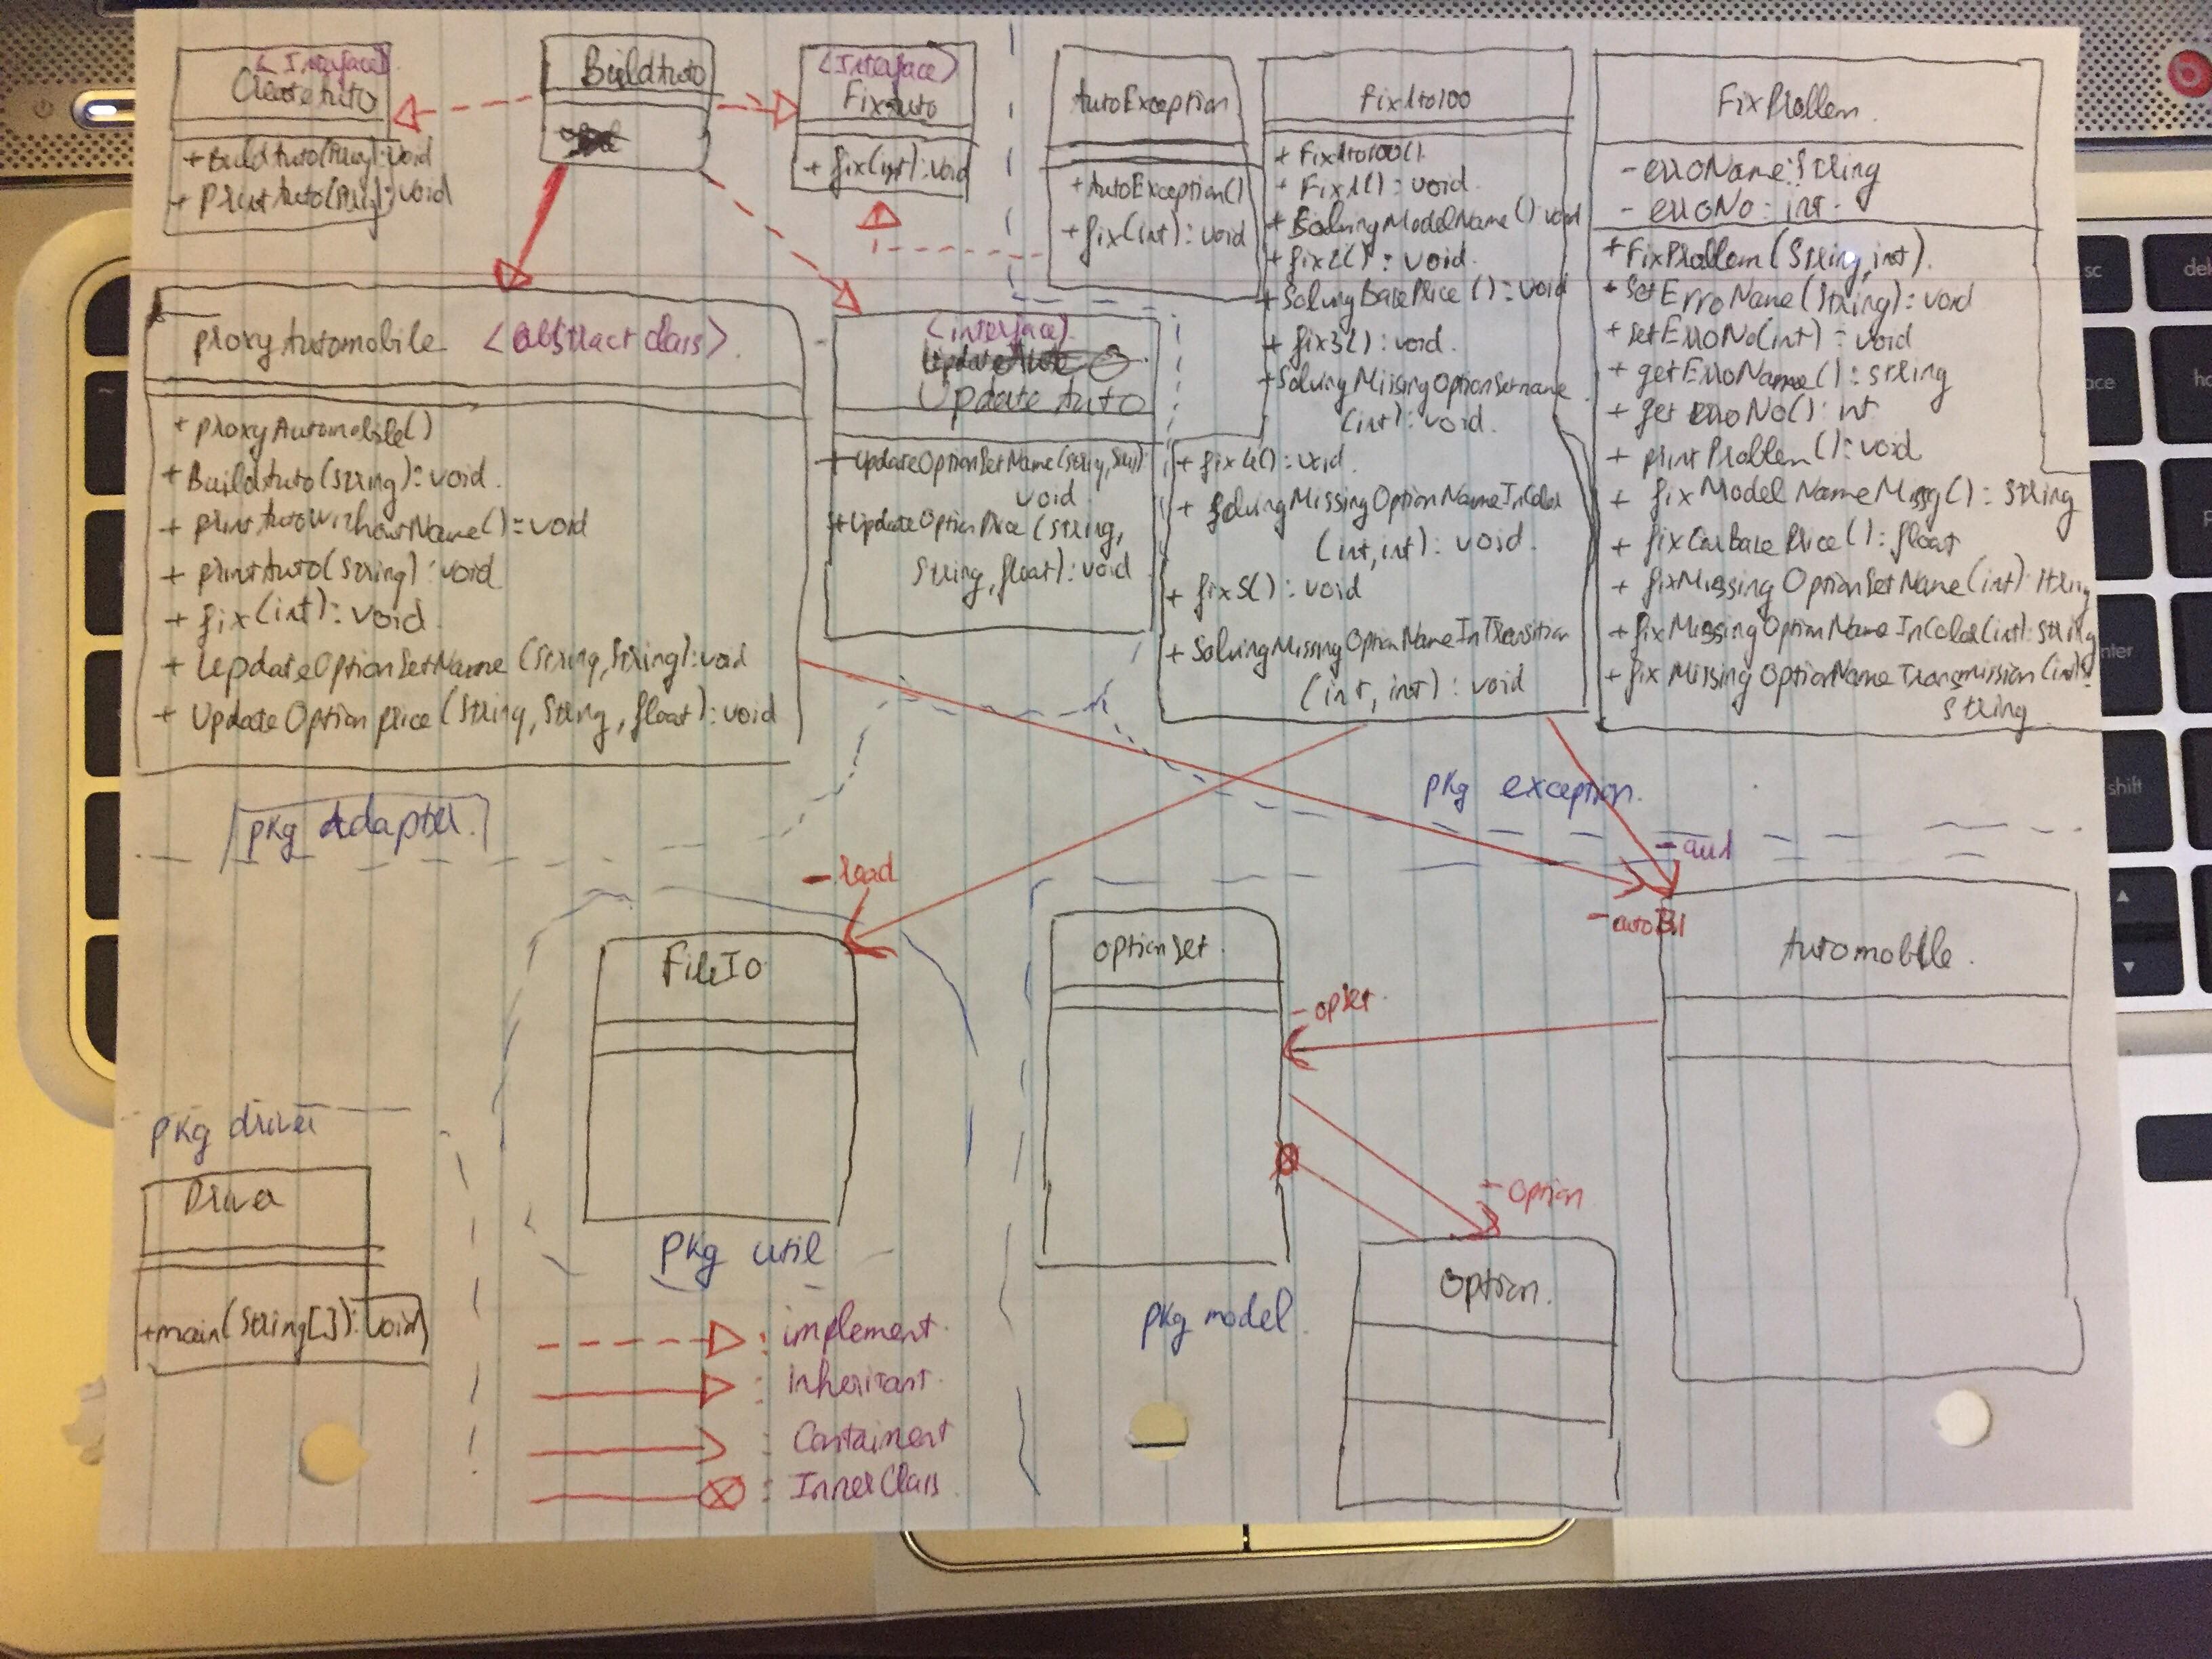 <Interface>
CreateAuto
+BuildAuto(String):void
+ PrintAuto(String):void
BuildAuto
<Interface>
FixAuto
+ fix(int):void
AutoException
+AutoException()
+fix(int):void
Fix1to100
+ Fix1to100()
+ Fix1():void
+ SolvingModelName() void
+ fix2():void.
+ SolvingBasePrice():void
+ fix3():void.
+SolvingMissingOptionSetname
(int):void.
+ fix4():void.
+ SolvingMissingOptionNameInColor
(int,int):void.
+ fix5():void
+ SolvingMissingOptionNameInTransition
(int, int):void
FixProblem.
-erroName:String
- erroNo:int.
+FixProblem(String,int).
+ SetErroName(String):void
+ setErroNo(int):void
+ getErroName():string
+ get erroNo():int
+ printProblem():void
+ fixModelNameMissg():string
+ fixCarBasePrice():float
+ fixMissing OptionSetName(int):String
+fixMissingOptionNameInColor(int):String
+fix MissingOptionNameTransmission(int):
string
proxyAutomobile <abstract class>.
+ proxyAutomobile()
+ BuildAuto(string):void.
+ printAutoWithoutName():void
+ printAuto(String):void
+ fix(int):void.
+ UpdateOptionSetName(String,String):void
+ UpdateOptionprice(String,String,float):void
<interface>
UpdateAuto
+UpdateOptionSetName(String,String)
void
+UpdateOptionPrice(string,
string,float):void
pkg Adapter.
pkg exception.
-read
-au1
-autoBil
FileIO
pkg util
OptionSet.
-opset.
-option
Option.
pkg model.
Automobile.
pkg driver
Driver
+main(String[]):void
: implement.
: inheritant.
: Containent
: InnerClass
sc
del
ace
enter
shift